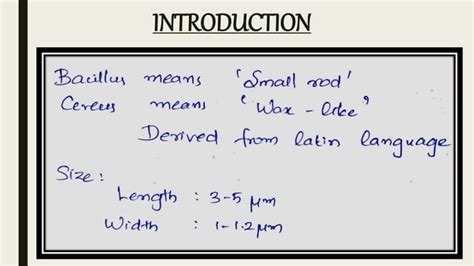 INTRODUCTION
Bacillus means 'Small rod'
Cereus means 'Wax-like'
Derived from latin language
Size:
Length : 3-5 μm
Width : 1-1.2μm